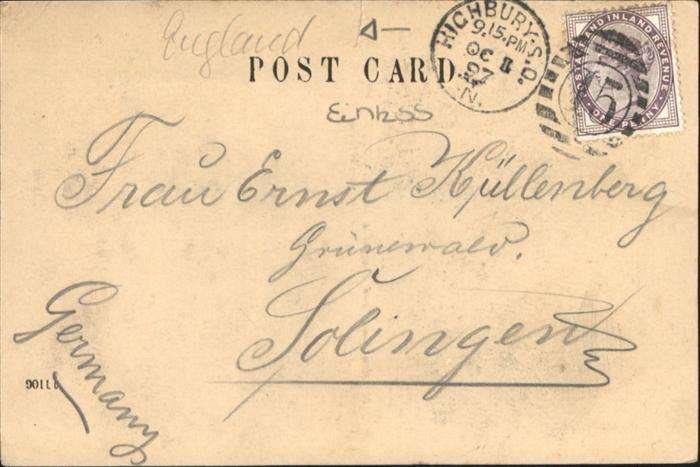 England
HIGHBURY.S.O.
9.15.PM
OC 1
97
N.
POSTAGE AND INLAND REVENUE
ONE PENNY
POST CARD.
Frau Ernst Küllenberg
Grünewald.
Solingen
Germany